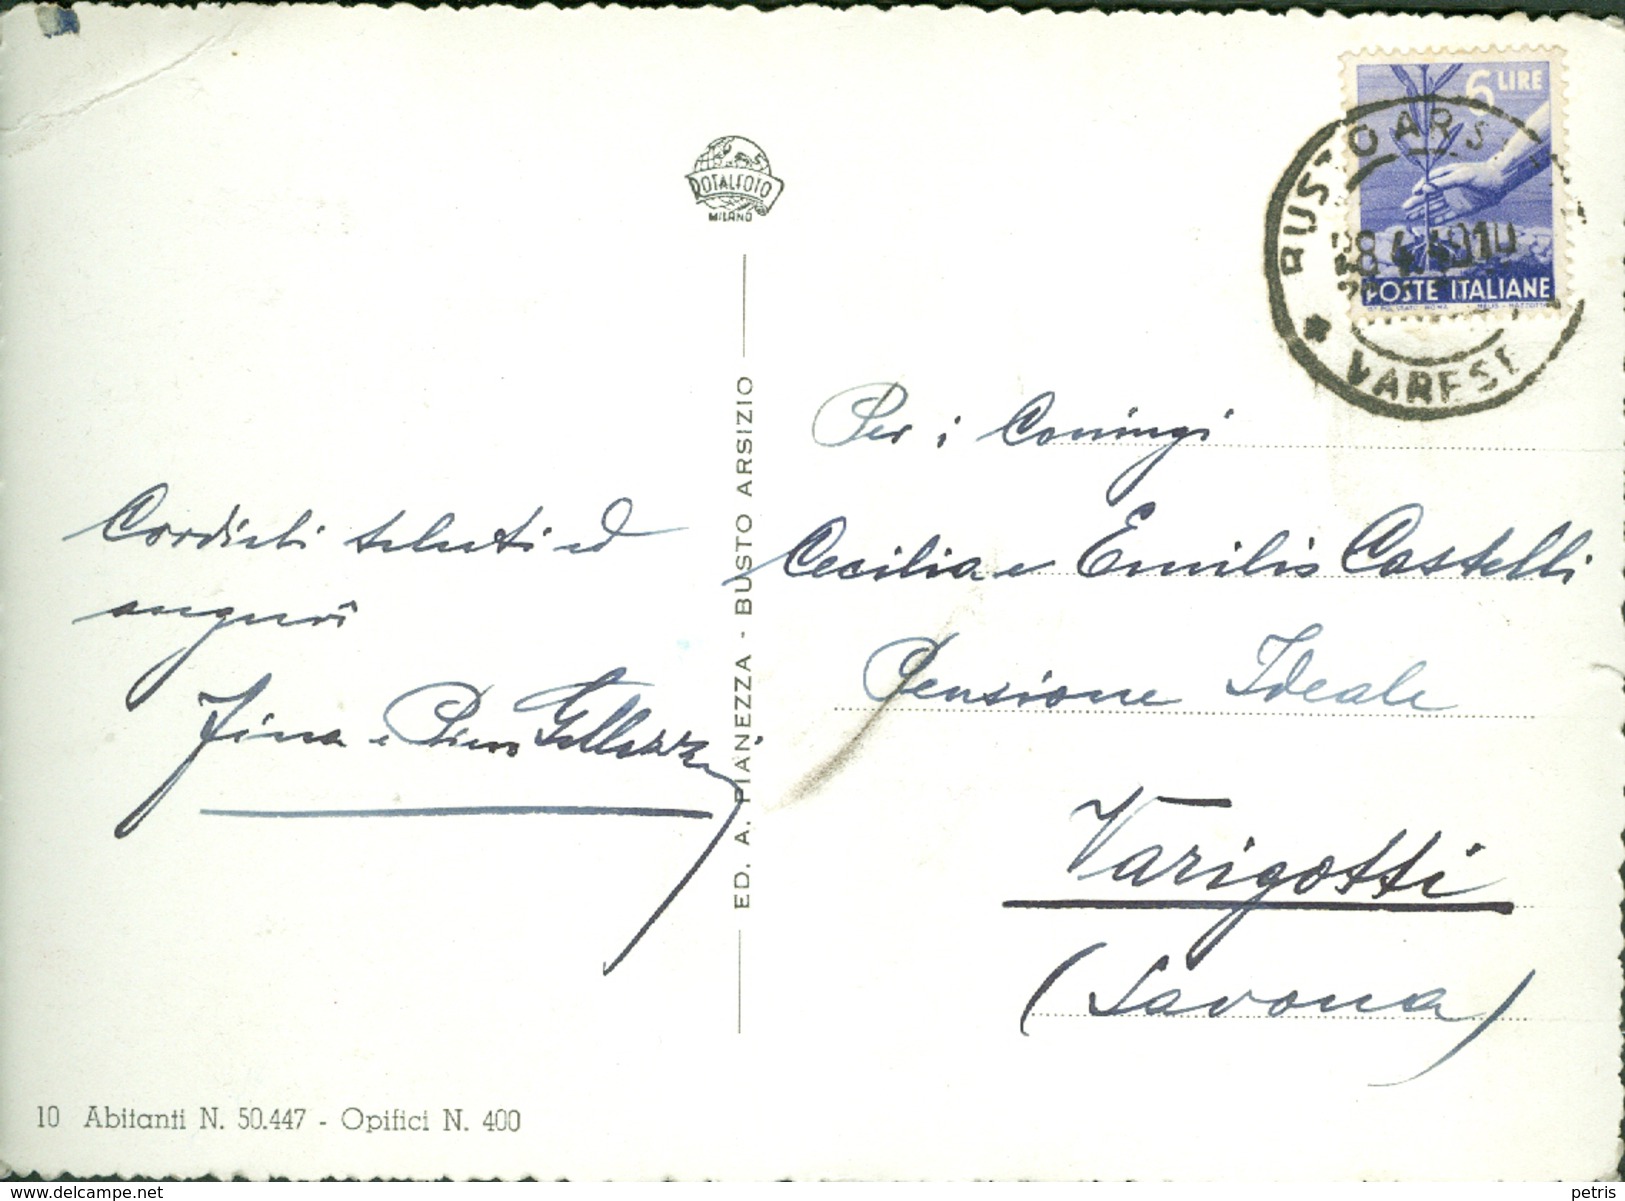 ROTALFOTO
MILANO
6 LIRE
BUSTO ARSIZIO
8.4.49.10
POSTE ITALIANE
* VARESE
Cordiali saluti ed
auguri
Pina e Piero
Per i Coniugi
Cecilia e Emilio Castelli
Pensione Ideale
Varigotti
(Savona)
ED. A. PIANEZZA - BUSTO ARSIZIO
10 Abitanti N. 50.447 - Opifici N. 400
delcampe.net
petris